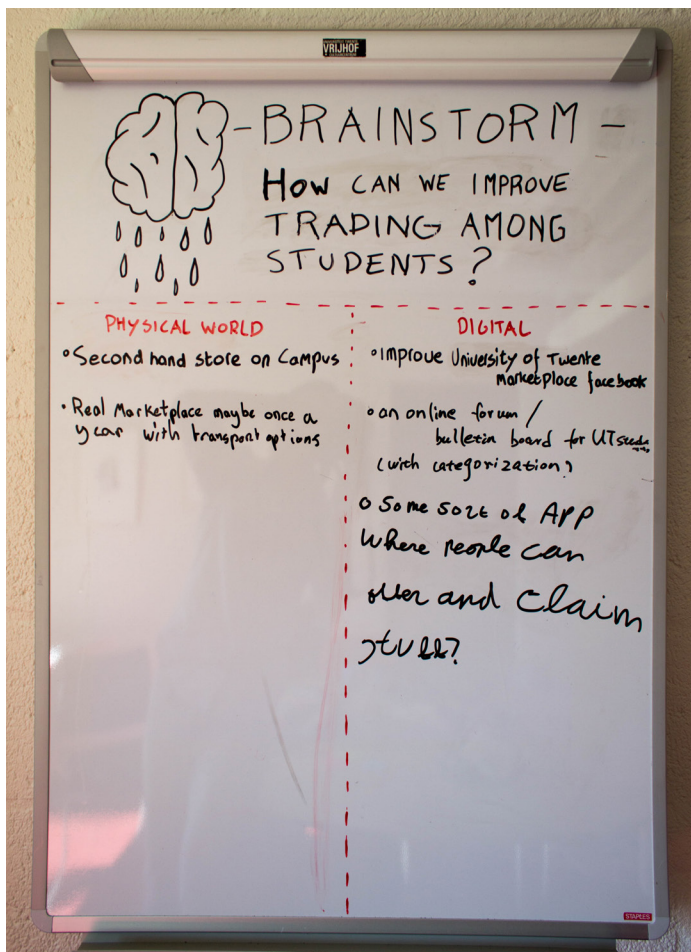 VRIJHOF
- BRAINSTORM -
HOW CAN WE IMPROVE
TRADING AMONG
STUDENTS?
PHYSICAL WORLD
• Second hand store on Campus
• Real Marketplace maybe once a
year with transport options
DIGITAL
• Improve University of Twente
marketplace facebook
• an online forum /
bulletin board for UT
(with categorization?)
• Some sort of App
Where people can
offer and Claim
stuff?
STAPLES